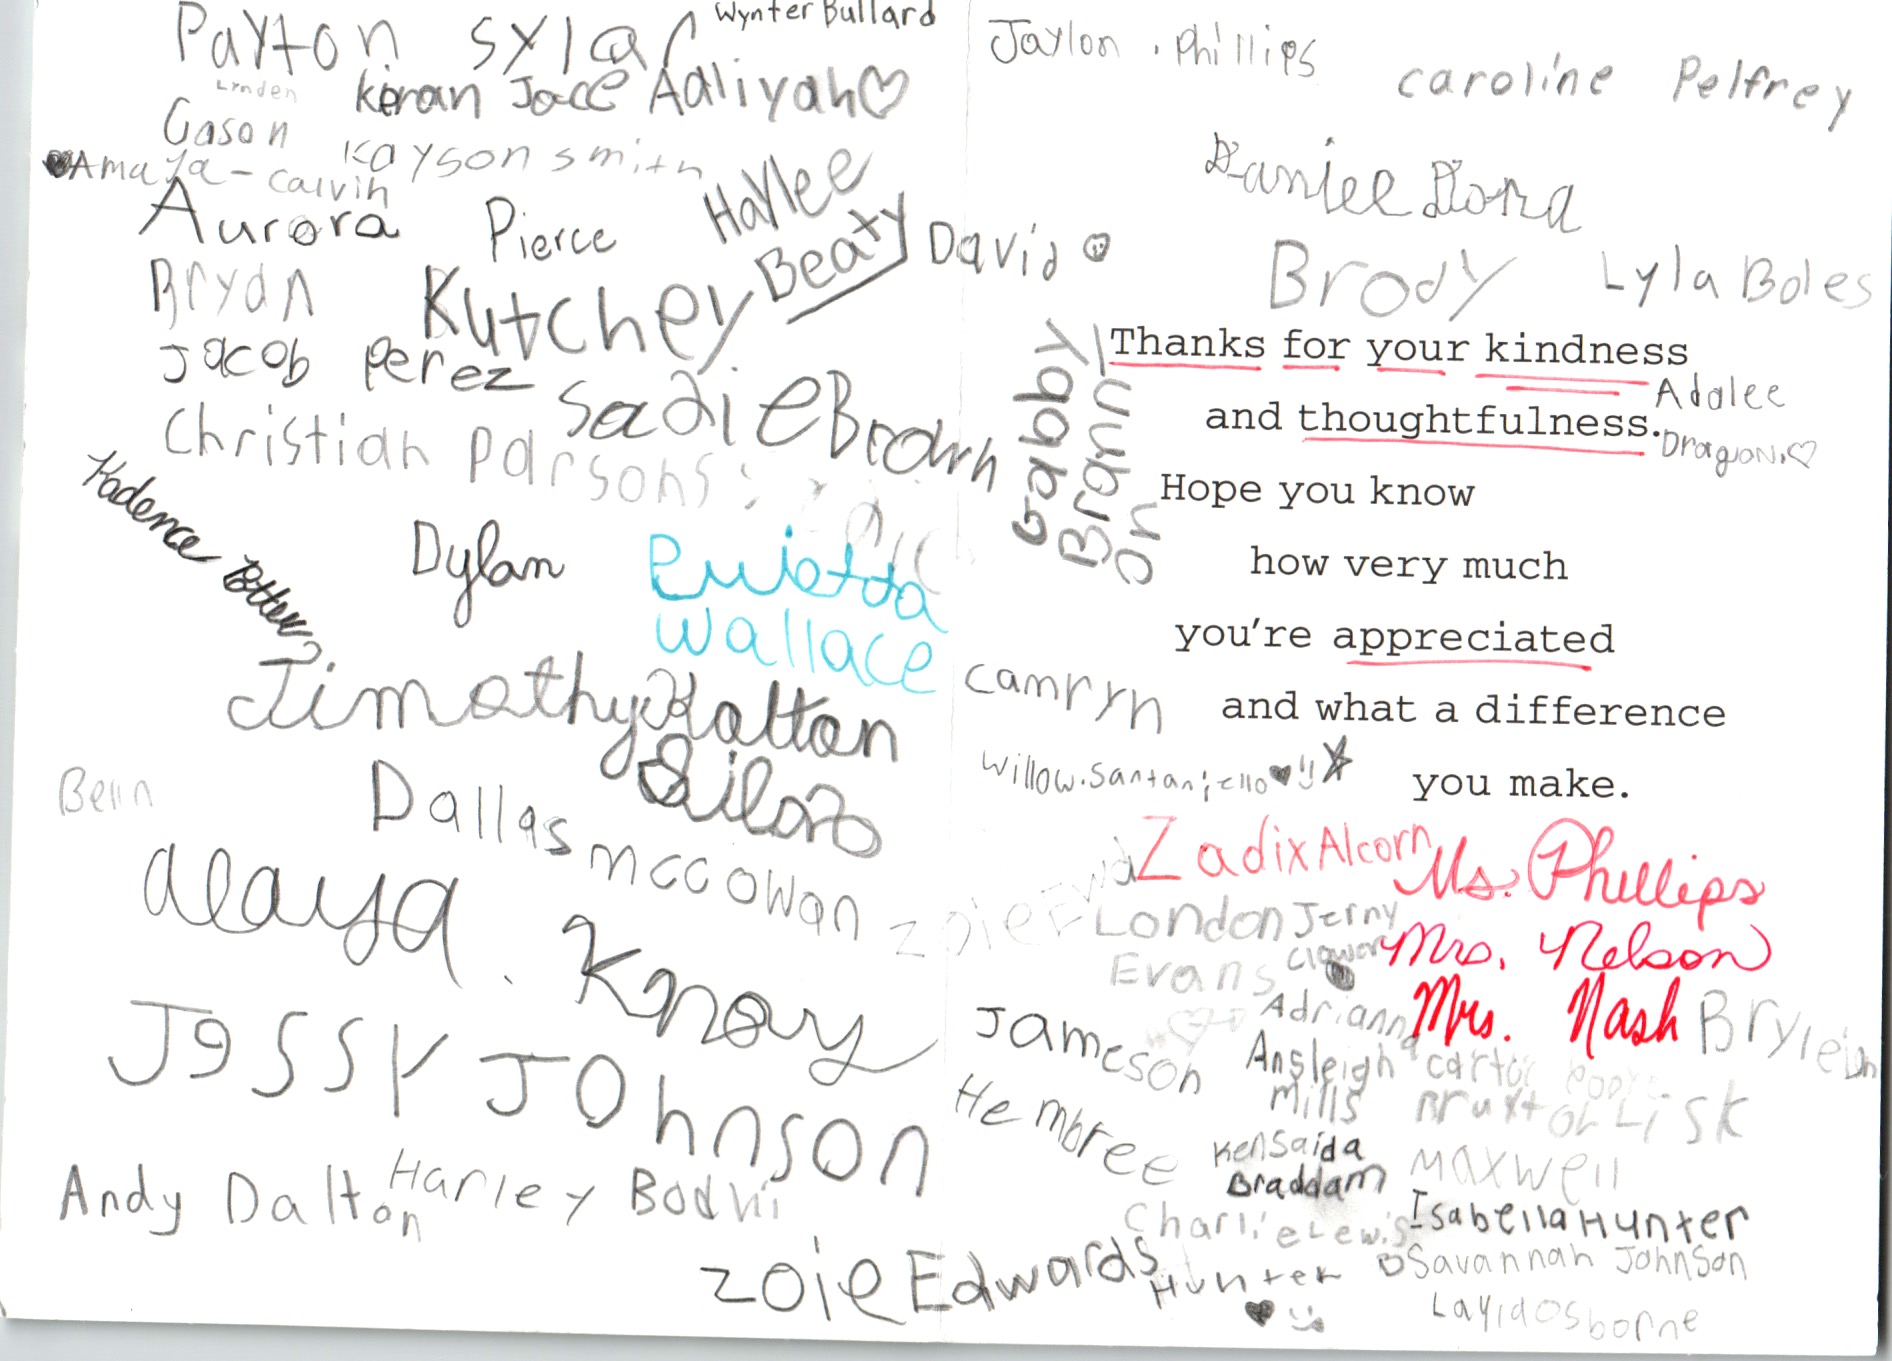 Payton Sylar Wynter Bullard
Lynden
Keran Jace Aaliyah
Gason
Kayson Smith
Amaya - Calvin
Aurora
Pierce
Haylee
Beaty
David
Bryan
Kutchey
Jacob Perez
Sadie Brown
Christian Parsons
Kadence
Dylan
Wallace
Timothy Hatton
Dallas McCowan
Alaya. Knoy
Jossy Johnson
Andy Dalton
Harley
Zoie Edwards
Jaylon . Phillips
Caroline Pelfrey
Brody
Lyla Boles
Gabby
Brann
on
Thanks for your kindness
and thoughtfulness.
Adalee
Dragon.
Hope you know
how very much
you're appreciated
and what a difference
you make.
Camryn
Willow.Santaniello
Zadix Alcorn
Ms. Phillips
London
Evans
Mrs. Nelson
Adrianna
Mrs. Nash
Bryleigh
Jameson
Hembree
Ansleigh
Mills
Carter
Lisk
Kensaida
Braddam
Maxwell
Charlie Lewis
Isabella Hunter
Hunter
Savannah Johnson
Layla Osborne